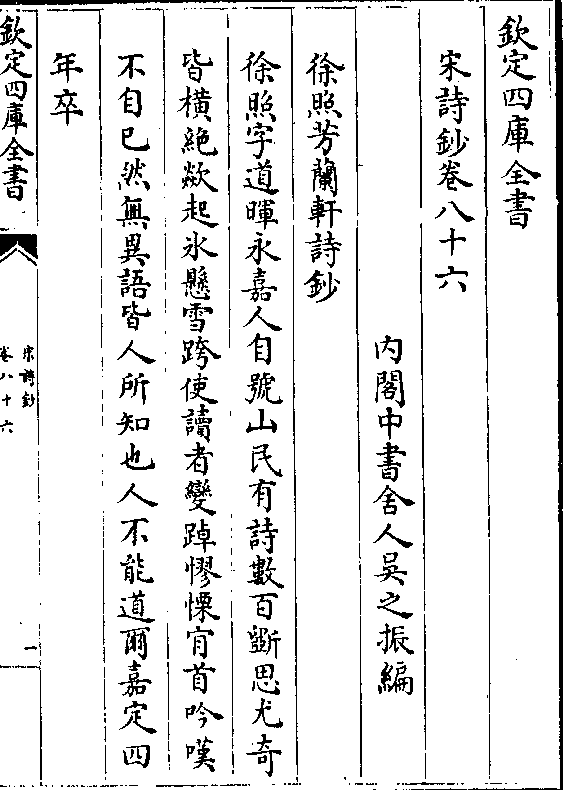 欽定四庫全書
宋詩鈔卷八十六
内閣中書舍人吳之振編
徐照芳蘭軒詩鈔
徐照字道暉永嘉人自號山民有詩數百斵思尤奇
皆横絶歘起氷懸雪跨使讀者變踔憀慄肯首吟嘆
不自已然無異語皆人所知也人不能道爾嘉定四
年卒
欽定四庫全書
宋詩鈔
卷八十六
一